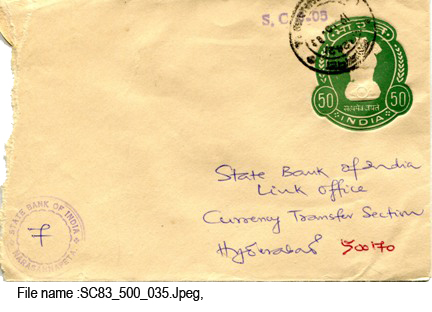 S. C.
भारत
50 50
सत्यमेव जयते
INDIA
State Bank of India
Link office
Currency Transfer Section
Hyderabad 500170
STATE BANK OF INDIA
NARASANNAPETA
File name :SC83_500_035.Jpeg,